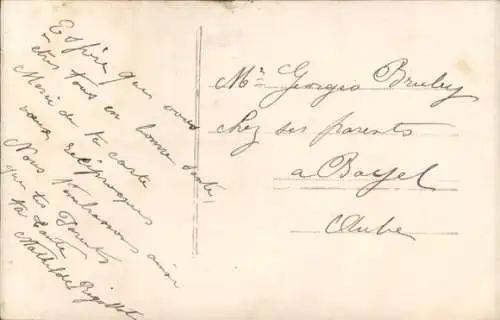 Espère que vous
êtes tous en bonne santé
Merci de ta carte
vœux réciproques
Nous t'embrassons ainsi
que tes Parents
ta tante
Mathilde
Mr Georges
chez ses parents
à Bayel
Aube